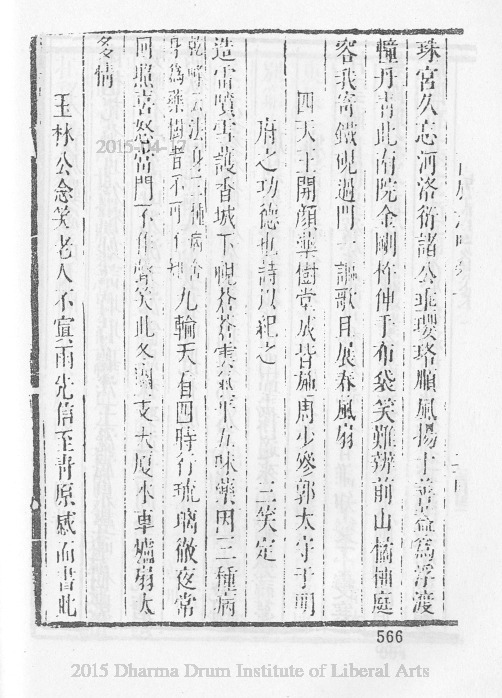 珠宮久忘河洛衍諸公垂瓔珞順風揚十善蓋為浮渡
幢丹青此南院金剛杵伸手布袋笑難辨前山橘柚庭
容我寄鐵硯過門一謳歌且展春風扇
四天王開顏藥樹堂成皆施周少參郭太守于明
府之功德也詩以紀之 三笑定
造雷噴雪護香城下視蒼蒼雲氣年五味藥因三種病
乾峰云法身三種病 為藥樹者不可不 九輪天看四時行琉璃徹夜常
回照喜怒當門不作聲矣此冬園支大厦冰車爐扇太
多情
玉林公念笑老人不寘雨光信至青原感而書此
2015-04-17
566
2015 Dharma Drum Institute of Liberal Arts